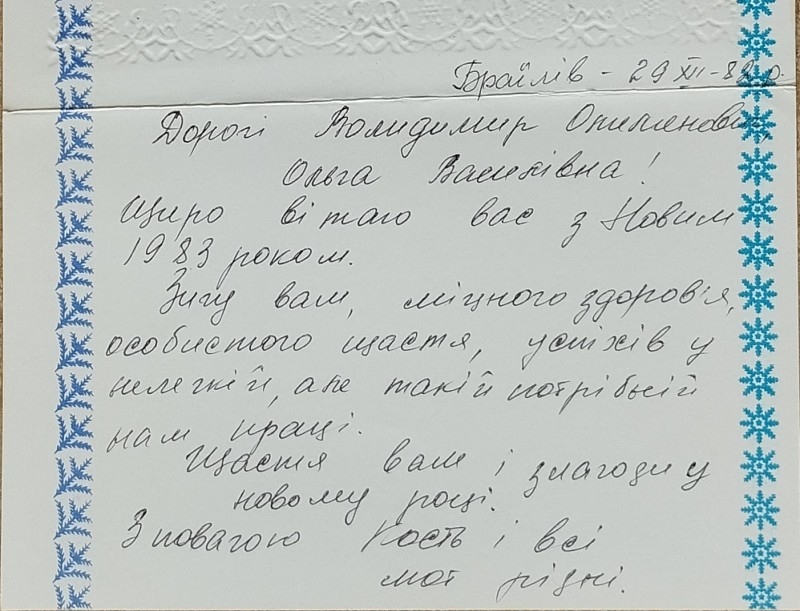 Браїлів - 29 XII - 82 р.
Дорогі Володимир
Ольга Василівна!
Щиро вітаю вас з Новим
1983 роком.
Зичу вам, міцного здоров'я,
особистого щастя, успіхів у
нелегкій, але такій потрібній
нам праці.
Щастя вам і злагоди у
новому році.
З повагою Кость і всі
мої рідні.